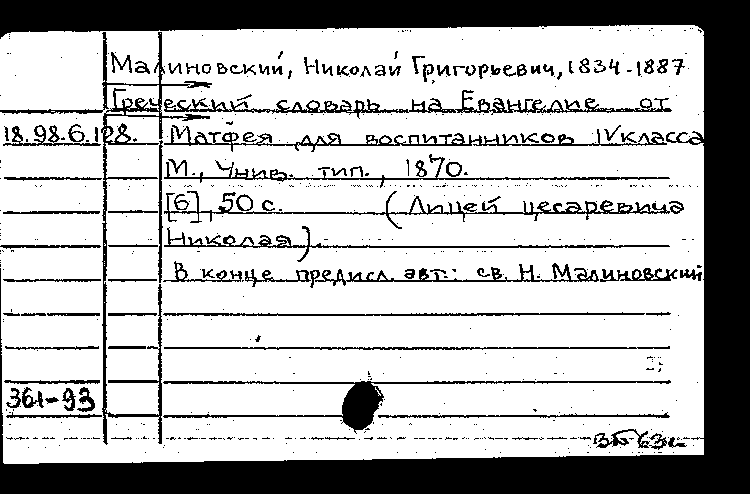 Малиновский, Николай Григорьевич, 1834-1887
Греческий словарь на Евангелие от
18.98.6.128. Матфея для воспитанников IV класса
М., Унив. тип., 1870.
[6], 50 с. (Лицей цесаревича
Николая).
В конце предисл. авт.: св. Н. Малиновский
361-93